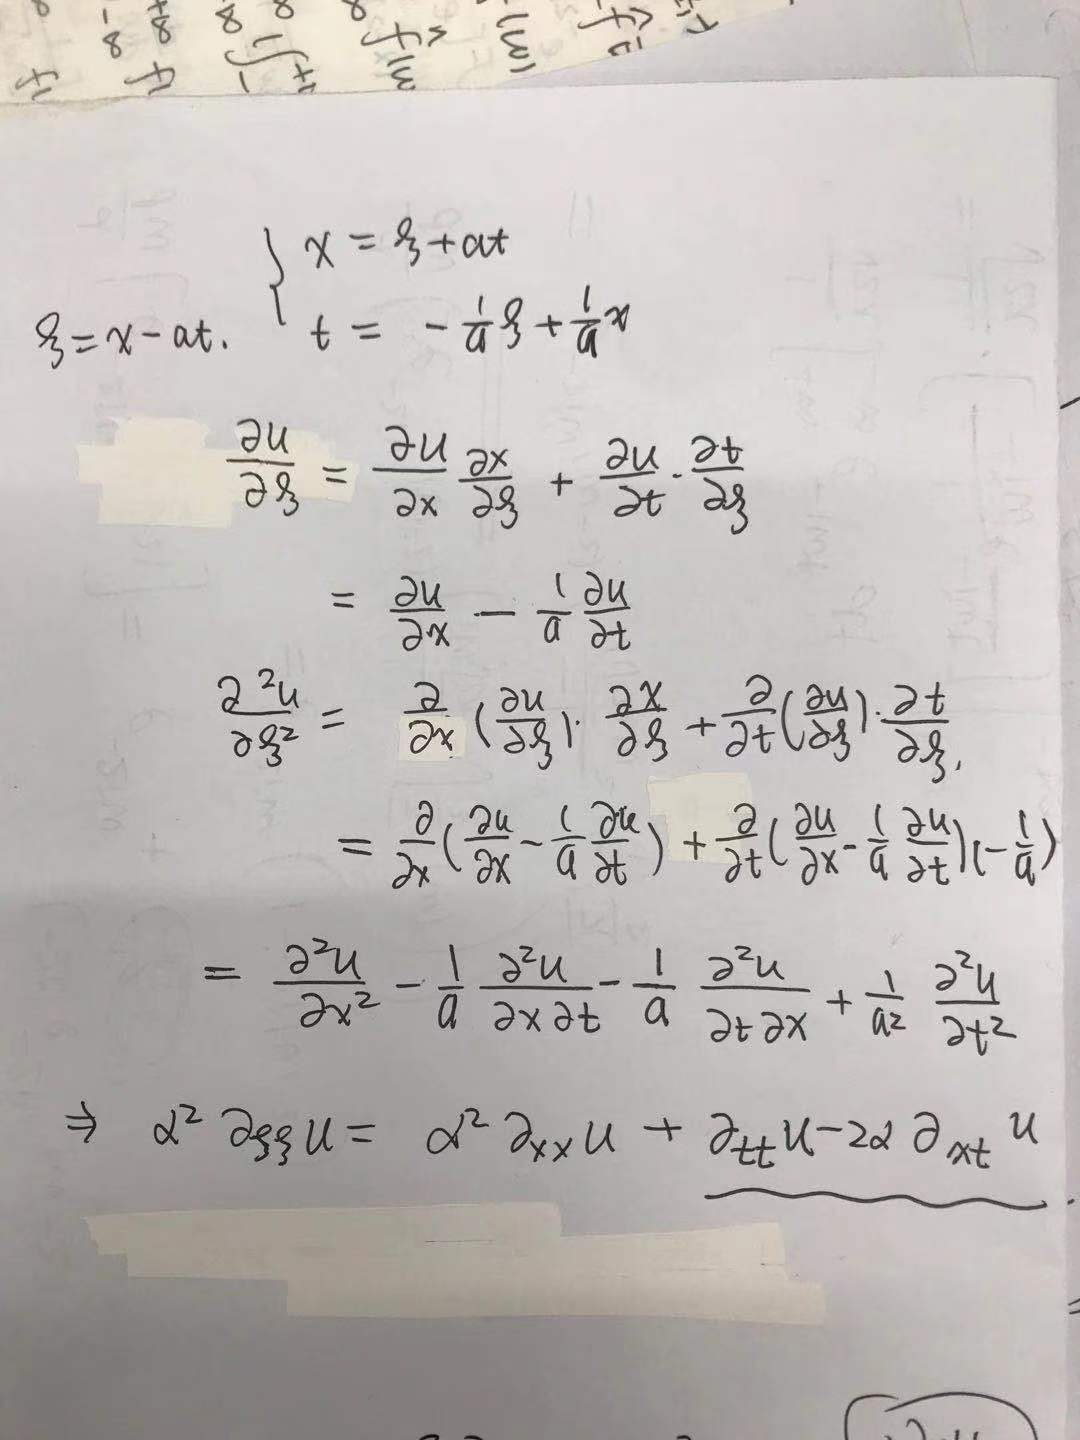 x = ξ + at
ξ = x - at. t = - 1/a ξ + 1/a x
∂u/∂ξ = ∂u/∂x ∂x/∂ξ + ∂u/∂t · ∂t/∂ξ
= ∂u/∂x - 1/a ∂u/∂t
∂²u/∂ξ² = ∂/∂x (∂u/∂ξ) · ∂x/∂ξ + ∂/∂t (∂u/∂ξ) · ∂t/∂ξ.
= ∂/∂x (∂u/∂x - 1/a ∂u/∂t) + ∂/∂t (∂u/∂x - 1/a ∂u/∂t)(-1/a)
= ∂²u/∂x² - 1/a ∂²u/∂x∂t - 1/a ∂²u/∂t∂x + 1/a² ∂²u/∂t²
⇒ α² ∂ξξ u = α² ∂xx u + ∂tt u - 2α ∂xt u